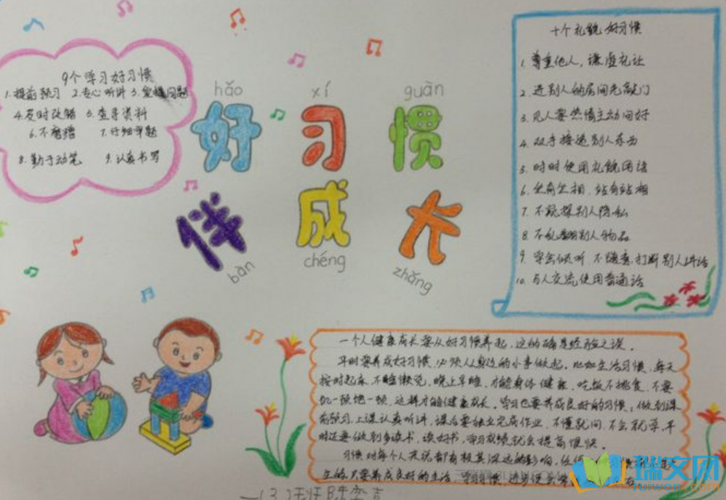 9个学习好习惯
1.提前预习 2.专心听讲 3.
4.及时改错 5.查寻资料
6.不磨蹭 7.仔细审题
8.勤于动笔 9.认真书写
hǎo xí guàn
好习惯
伴成长
bàn chéng zhǎng
十个礼貌好习惯
1.尊重他人,谦虚礼让
2.进别人的房间先敲门
3.见人要热情主动问好
4.双手接递别人东西
5.时时使用礼貌用语
6.坐有坐相,站有站相
7.不窥探别人隐私
8.不乱翻别人物品
9.学会倾听 不随意打断别人讲话
10.与人交流使用普通话
一个人健康成长要从好习惯养起,这的确是经验之谈。
平时要养成好习惯,必须从身边的小事做起。比如生活习惯,每天
按时起床,不睡懒觉,晚上早睡,才能身体健康,吃饭不挑食,不要
饥一顿饱一顿,这样才能健康成长。学习也要养成良好的习惯,做到课
前预习,上课认真听讲,课后要独立完成作业,不懂就问,不会就录,平
时还要做到多读书,读好书,学习成绩就会提高很快。
习惯对每个人来说都有极其深远的影响,
要养成良好的生活、学习习惯,
瑞文网